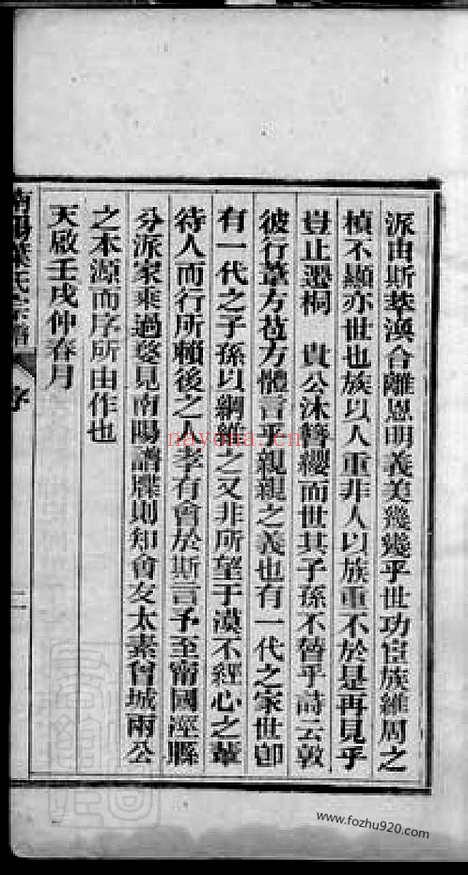 派由斯萃渙合離恩明義美幾幾乎世功宦族維周之
楨不顯亦世也族以人重非人以族重不於是再見乎
豈止遷桐 貴公沐簪纓而世其子孫不替乎詩云敦
彼行葦方苞方體言乎親親之義也有一代之家世卽
有一代之子孫以綱維之又非所望于漠不經心之輩
待人而行所賴後之人孝有會於斯言予至甯國涇縣
分派家乘過娑見南陽譜牒則知會友太素曾城兩公
之本源而序所由作也
天啟壬戌仲春月
南陽葉氏宗譜 序 二
nayona.cn
www.fozhu920.com